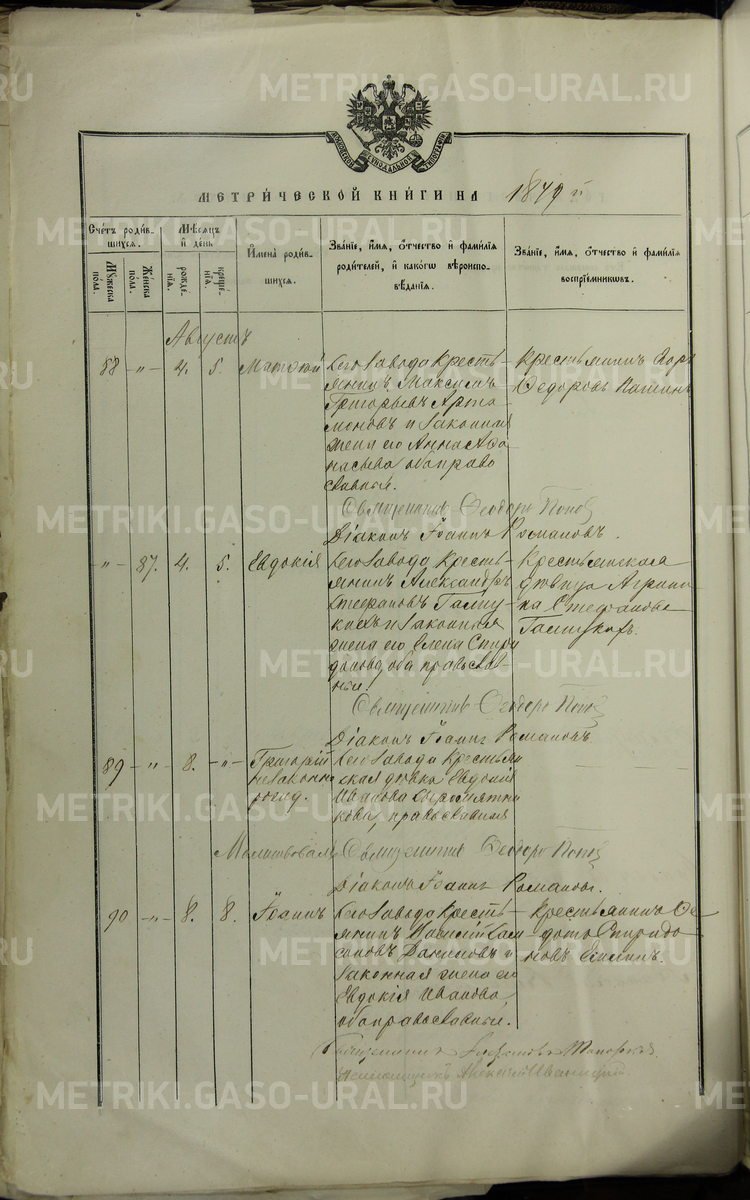 METRIKI.GASO-URAL.RU
МЕТРИ́ЧЕСКОЙ КНИ́ГИ НА 1879 й
Сче́тъ роди́вшихся.
Му́жеска по́ла.
Же́нска по́ла.
Мѣ́сяцъ и҆ де́нь
рожде́нїя.
креще́нїя.
И҆мена̀ роди́вшихся.
Зва́нїе, и҆́мя, ѻ҆́тчество и҆ фами́лїя роди́телей, и҆ како́гѡ вѣроисповѣ́данїя.
Зва́нїе, и҆́мя, ѻ҆́тчество и҆ фами́лїя воспрїе́мникѡвъ.
Августъ
88 " 4. 5. Матѳій
Сего Завода Кресть-
янинъ Максимъ
Григорьевъ Арта-
моновъ и законная
жена его Анна Аѳа-
насьева оба право
славные.
Крестьянинъ
Ѳедоровъ
Священникъ Ѳеодоръ Поповъ
Діаконъ Іоаннъ Романовъ.
" 87. 4. 5. Евдокія
Сего Завода Кресть-
янинъ Александръ
Стефановъ
и законная
жена его Елена Спири
донова, оба православ-
ные.
Крестьянская
дѣвица Агрипи-
на Стефанова
Священникъ Ѳеодоръ Поповъ
Діаконъ Іоаннъ Романовъ
89 " 8. " Григорій
незаконно
рожд.
Сего Завода Крестьян
ская дѣвка Евдокія
Иванова Сыромятни
кова, православная
Молитвовалъ Священникъ Ѳеодоръ Поповъ
Діаконъ Іоаннъ Романовъ.
90 " 8. 8. Іоаннъ
Сего Завода Кресть-
янинъ Василій Сам-
соновъ Даниловъ и
законная жена его
Евдокія Иванова,
оба православные.
Крестьянинъ Ѳе-
дотъ Спиридо-
новъ
Священникъ